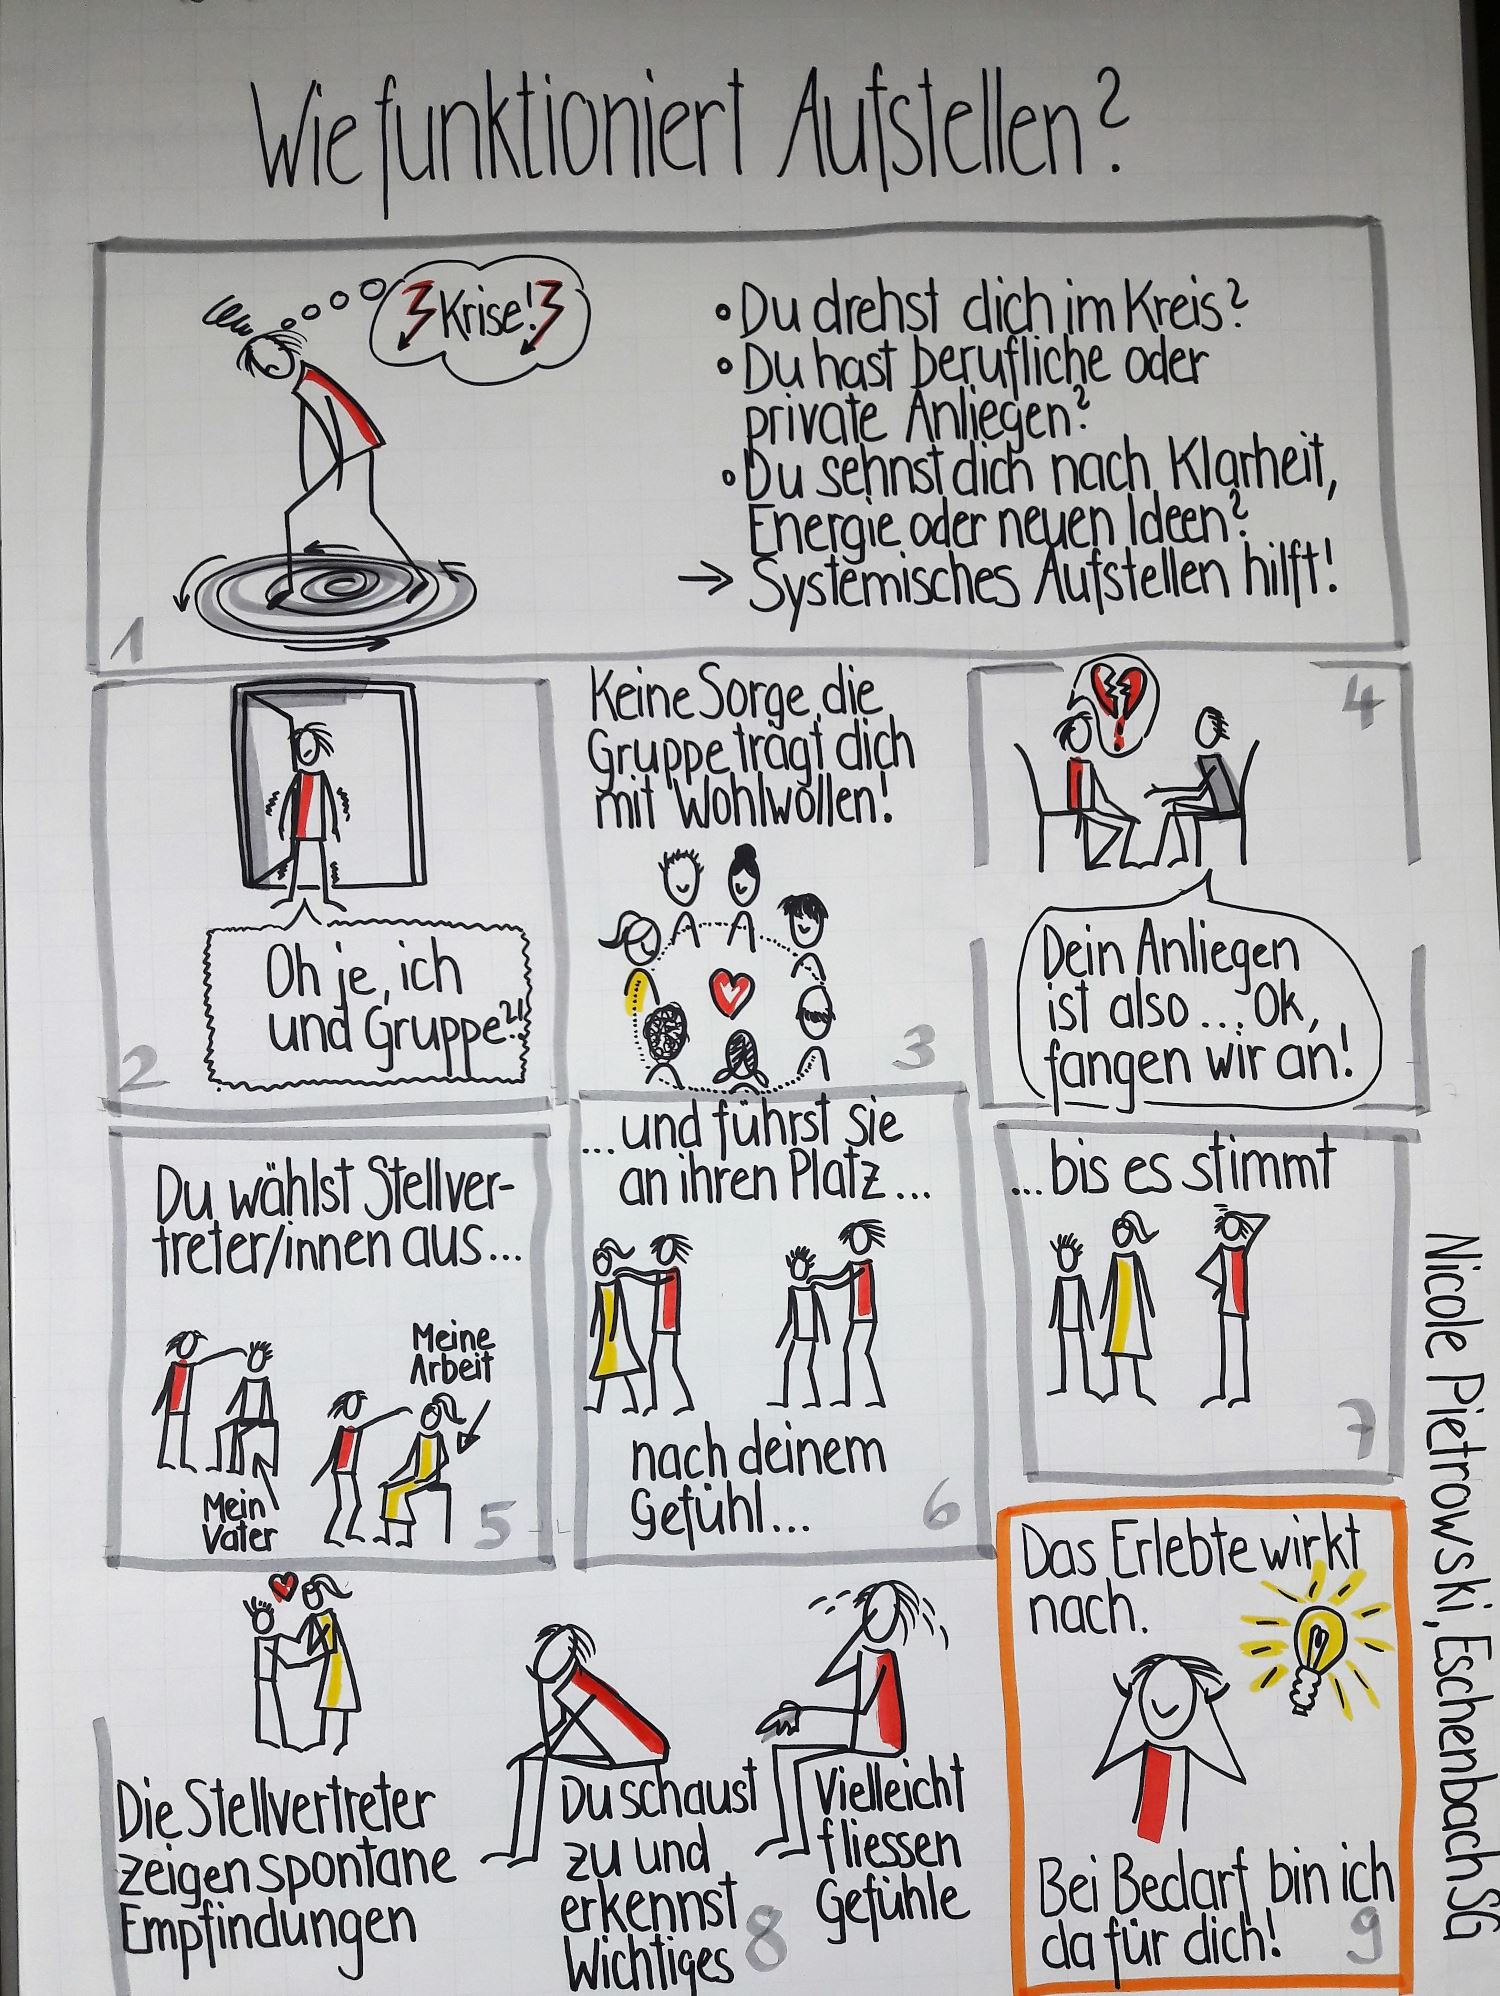 Wie funktioniert Aufstellen?
Krise!
• Du drehst dich im Kreis?
• Du hast berufliche oder
private Anliegen?
• Du sehnst dich nach Klarheit,
Energie oder neuen Ideen?
→ Systemisches Aufstellen hilft!
1
Oh je, ich
und Gruppe?!
2
Keine Sorge, die
Gruppe trägt dich
mit Wohlwollen!
3
4
Dein Anliegen
ist also... Ok,
fangen wir an!
Du wählst Stellver-
treter/innen aus...
Meine
Arbeit
Mein
Vater
5
...und führst sie
an ihren Platz...
nach deinem
Gefühl...
6
...bis es stimmt
7
Die Stellvertreter
zeigen spontane
Empfindungen
Du schaust
zu und
erkennst
Wichtiges
8
Vielleicht
fliessen
Gefühle
Das Erlebte wirkt
nach.
Bei Bedarf bin ich
da für dich!
9
Nicole Pietrowski, Eschenbach SG